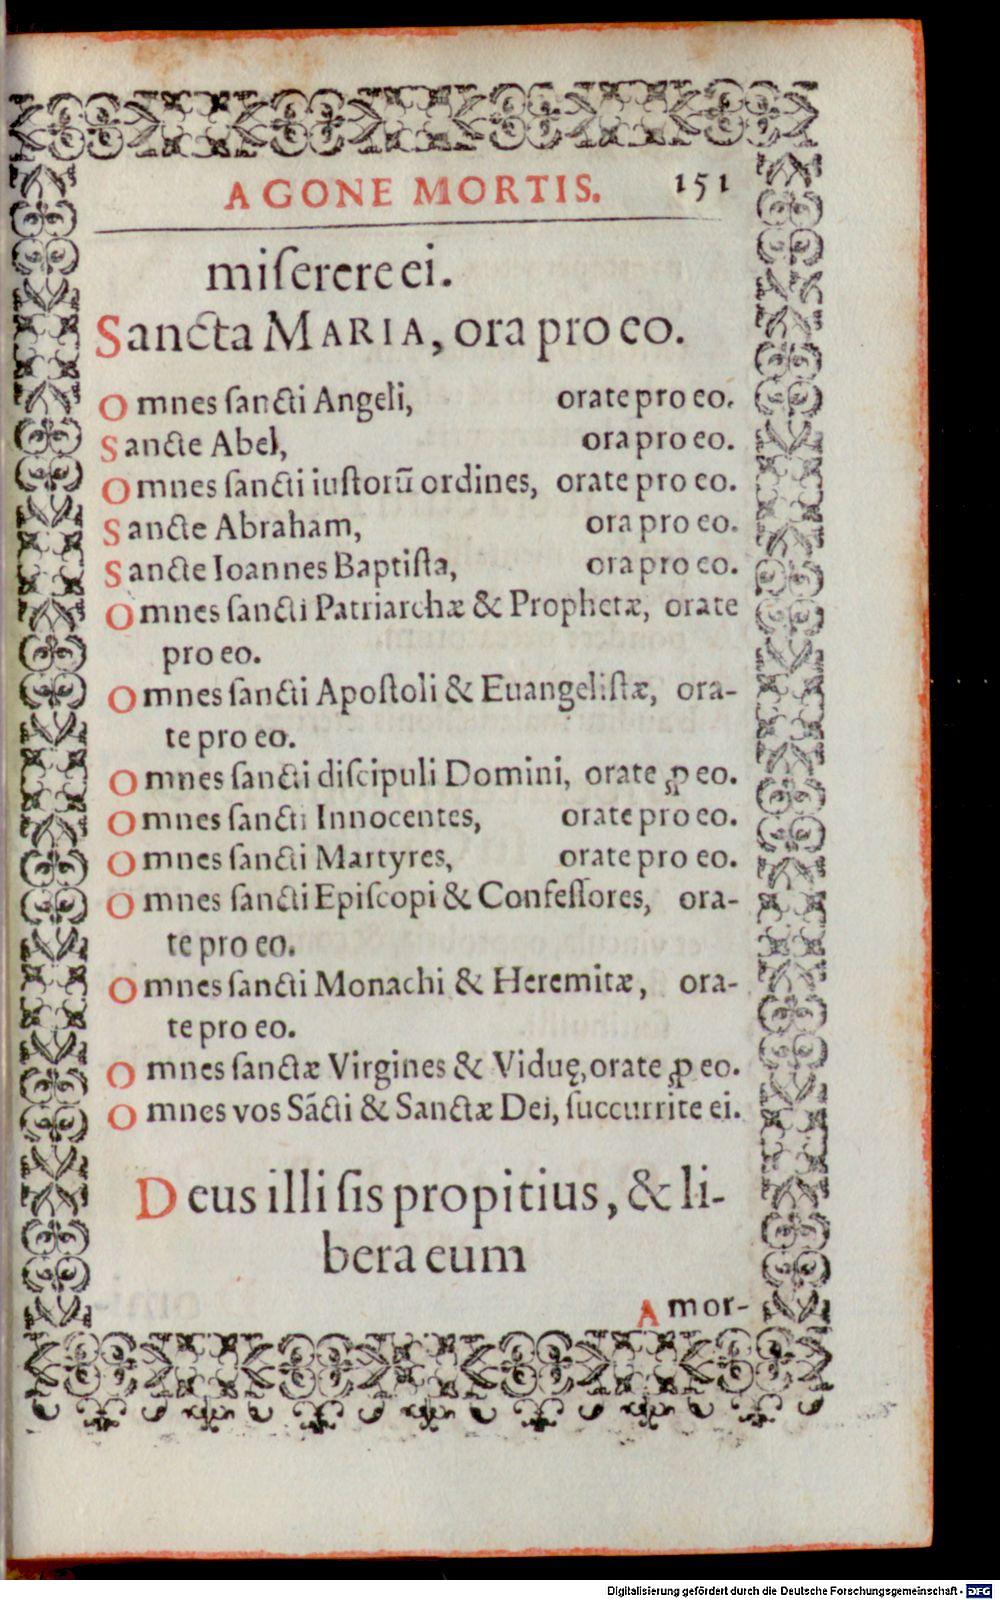 AGONE MORTIS. 151
miſerere ei.
Sancta MARIA, ora pro eo.
Omnes ſancti Angeli, orate pro eo.
Sancte Abel, ora pro eo.
Omnes ſancti iuſtorū ordines, orate pro eo.
Sancte Abraham, ora pro eo.
Sancte Ioannes Baptiſta, ora pro eo.
Omnes ſancti Patriarchæ & Prophetæ, orate
pro eo.
Omnes ſancti Apoſtoli & Euangeliſtæ, ora-
te pro eo.
Omnes ſancti diſcipuli Domini, orate ꝓ eo.
Omnes ſancti Innocentes, orate pro eo.
Omnes ſancti Martyres, orate pro eo.
Omnes ſancti Epiſcopi & Confeſſores, ora-
te pro eo.
Omnes ſancti Monachi & Heremitæ, ora-
te pro eo.
Omnes ſanctæ Virgines & Viduę, orate ꝓ eo.
Omnes vos Sācti & Sanctæ Dei, ſuccurrite ei.
Deus illi ſis propitius, & li-
bera eum
A mor-
Digitalisierung gefördert durch die Deutsche Forschungsgemeinschaft - DFG